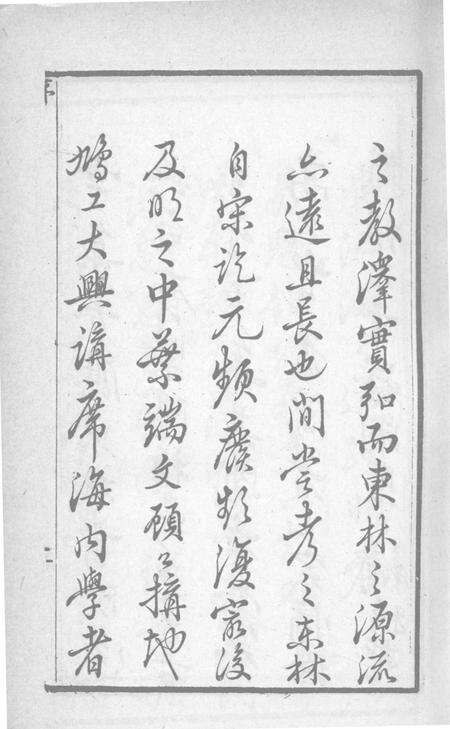 之教澤實弘而東林之源流
亦遠且長也間嘗考之東林
自宋訖元頻廢頻復寂後
及明之中葉端文顧公搆地
鳩工大興講席海内學者
序
二